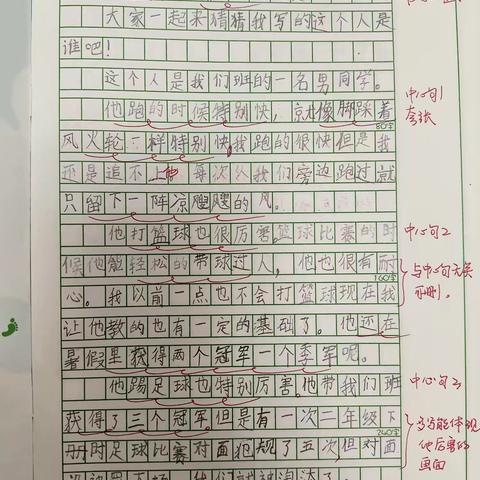 大家一起来猜猜我写的这个人是
谁吧！
这个人是我们班的一名男同学。
他跑的时候特别快，就像脚踩着
中心句1
夸张
80字
风火轮一样特别快，我跑的很快但是我
还是追不上他 每次从我们旁边跑过就
只留下一阵凉飕飕的风。
他打篮球也很厉害。篮球比赛的时
中心句2
候他能轻松的带球过人，他也很有耐
160字
与中心句无关
可删。
心。我以前一点也不会打篮球现在我
让他教的也有一定的基础了。他还在
暑假里获得两个冠军一个季军呢。
他踢足球也特别厉害。他带我们班
中心句3
获得了三个冠军。但是有一次二年级下
240字
册时足球比赛对面犯规了五次，但对面
能体现
他厉害的
画面
我们就被淘汰了